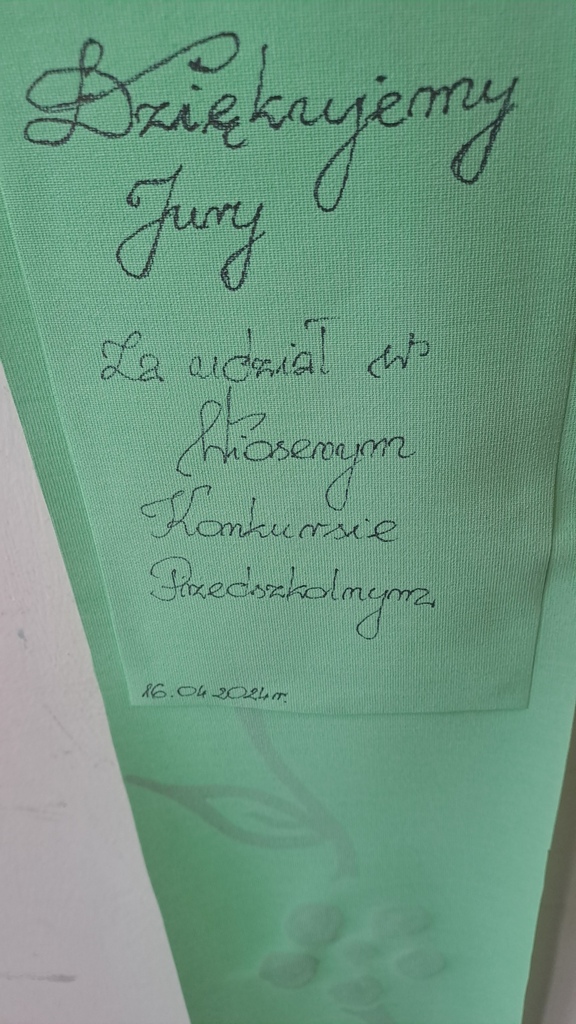 Dziękujemy
Jury
Za udział w
Wiosennym
Konkursie
Przedszkolnym
16.04.2024r.